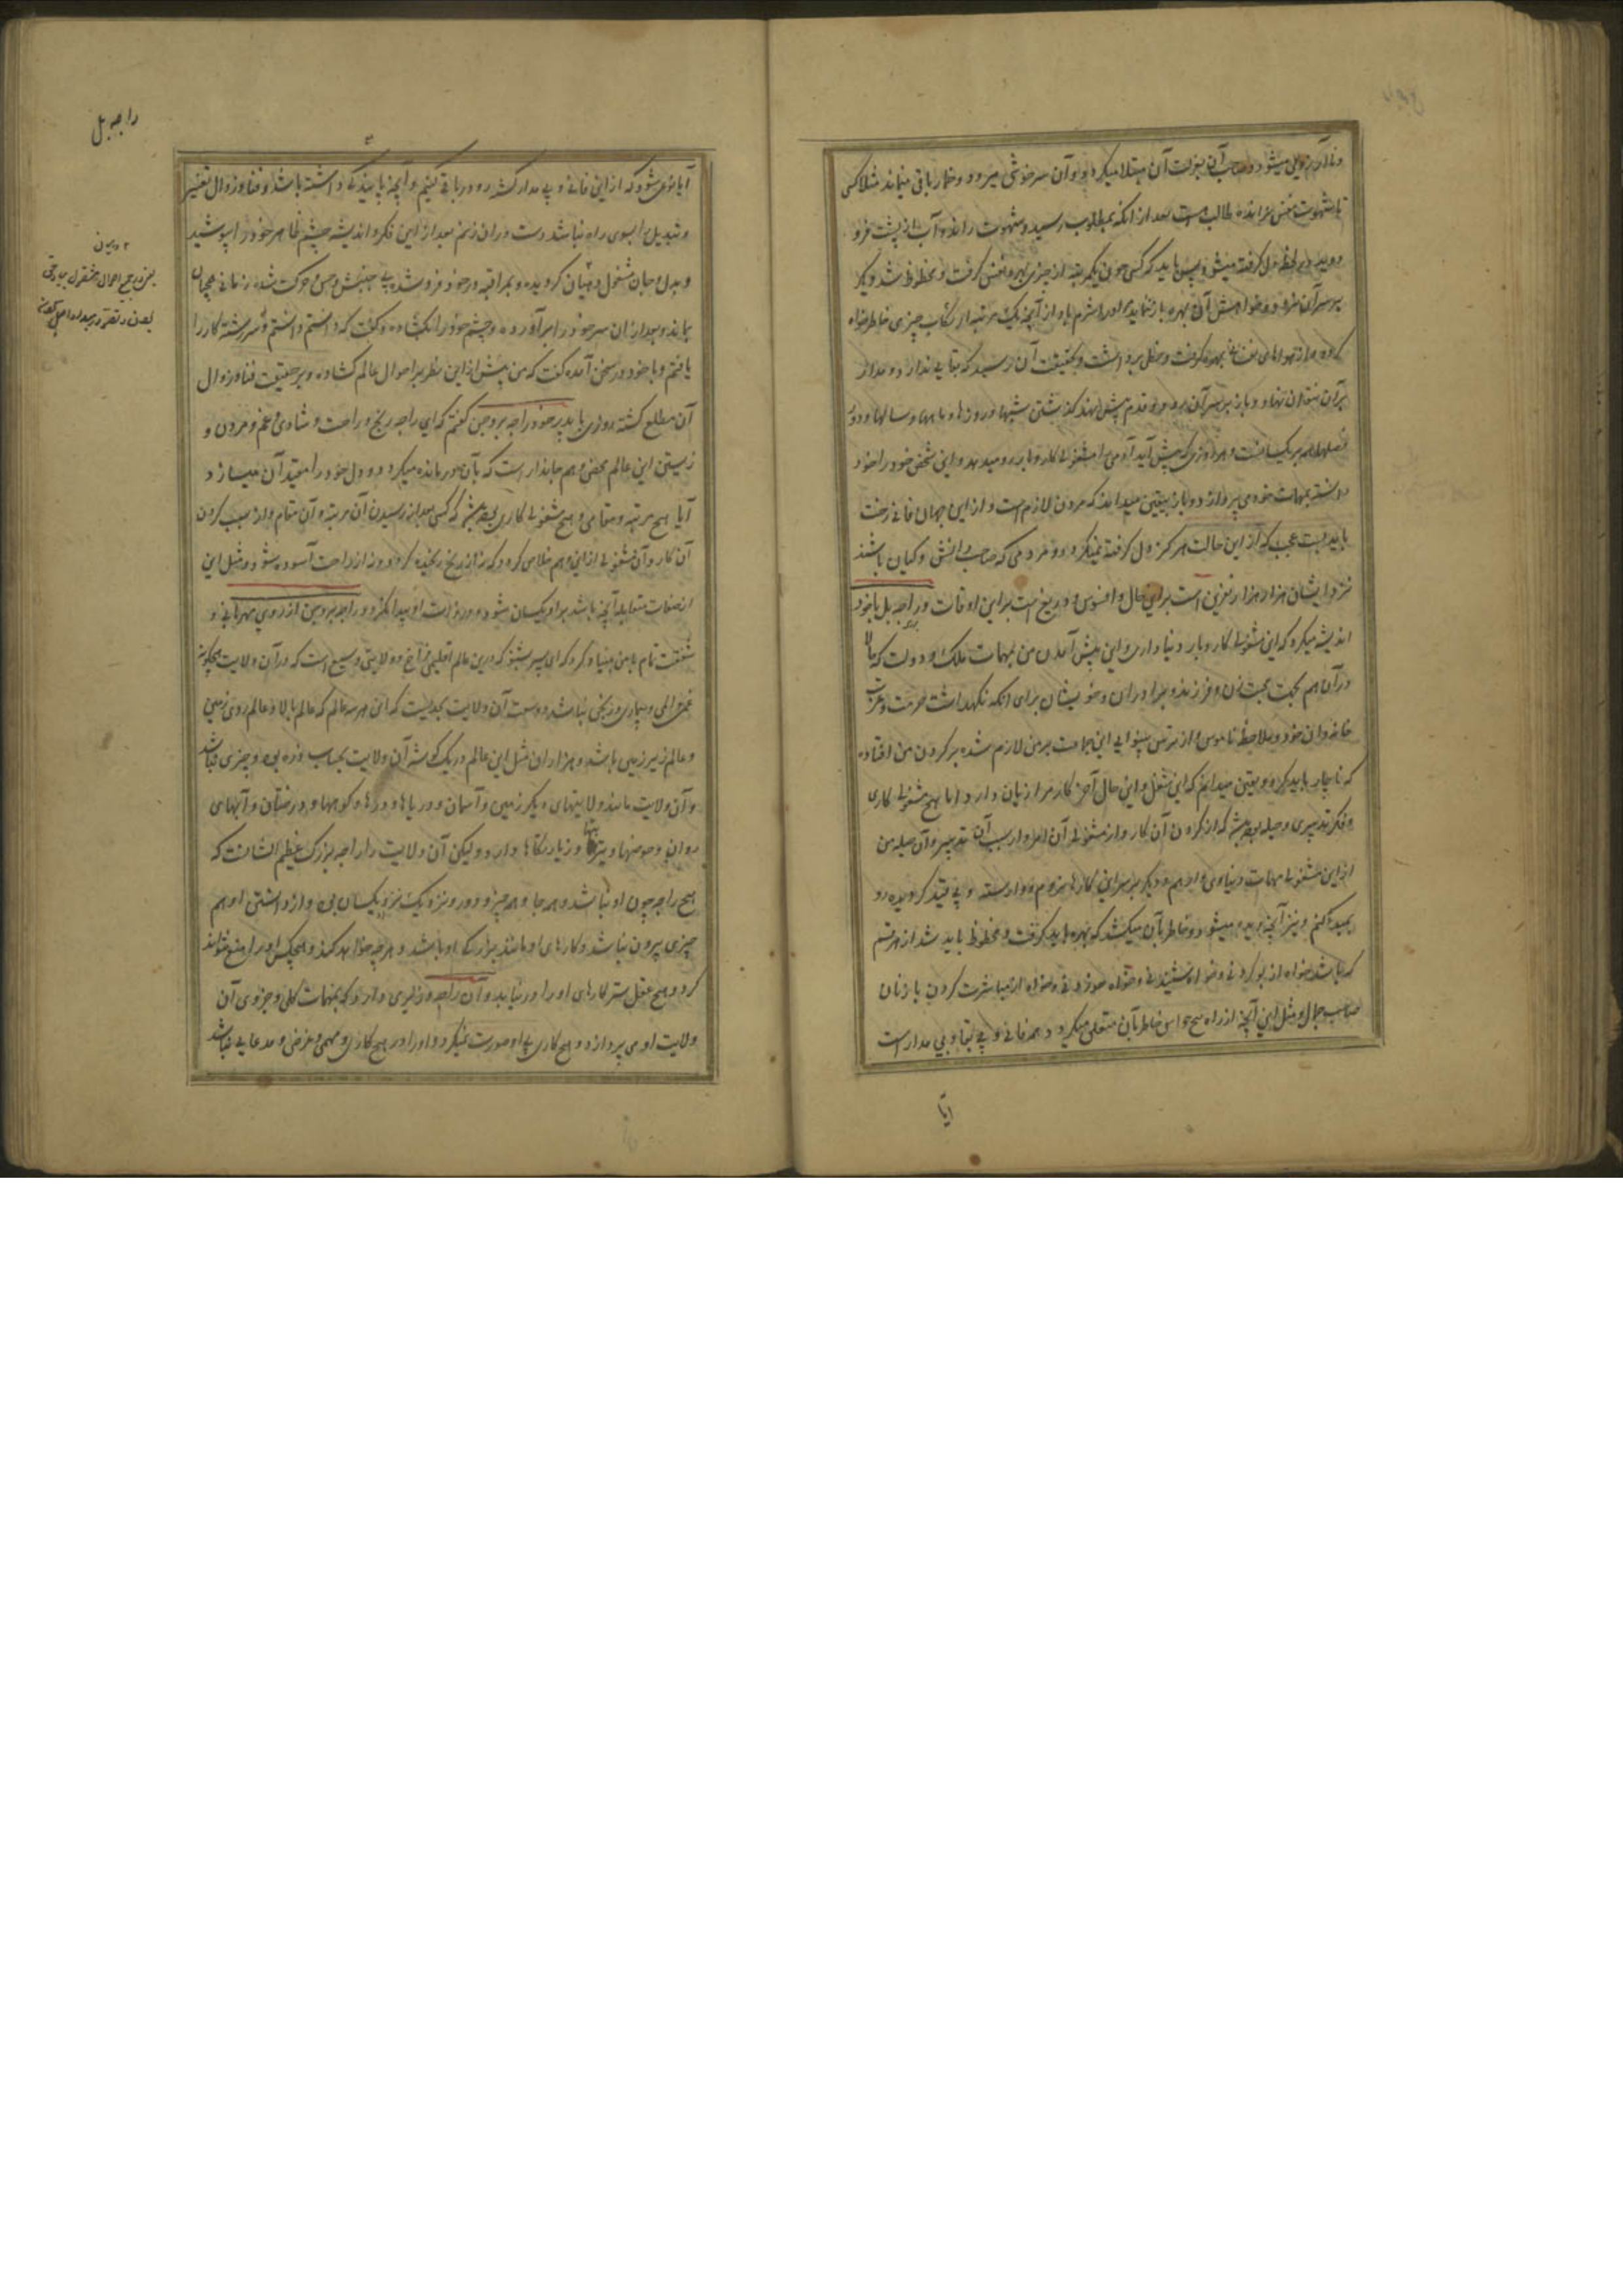 و نا آرام دلی میشود و صاحب آن بعزلت آن مبتلا میگردد و آن سرخوشی میرود و خمار باقی میماند مثلا کسی
با شهوت نفس درمانده طالب است بعد از آنکه بمطلوب رسید و شهوت راند و آب از پشت فرو
دوید در لحظه دل گرفته میشود پس باید که کسی چون یکمرتبه از چیزی بهره نفس گرفت و محظوظ شد دیگر
بر سر آن نرود و خواهش آن بهره باز ننماید و او را شرم باد از آنچه یک مرتبه ارتکاب چیزی خاطرخواه
کرده و از هواهای نفسانی بهره گرفت و حظی برداشت و بحقیقت آن رسید که بقایی ندارد و مدار
بر آن نتوان نهاد و باز بر سر آن برود و قدم پیش نهد گذشتن شبها و روزها و ماهها و سالها و دور
فصلها همه بر یکسانست و هر روزی که پیش آید آدمی را مشغولی کار و بار رو میدهد و این شخص خود را خود
دانسته بمهمات خود می پردازد و باز بیقین میداند که مردن لازم است و از این جهان فانی رخت
باید بست عجب که از این حالت هرگز دل گرفته نمیگردد و مردمی که صاحب دانش و گیان باشند
نزد ایشان هزار هزار نفرین است برای حال و افسوس و دریغ است بر این اوقات و راجه بل با خود
اندیشه میکرد که این مشغولی کار و بار دنیا داری و این پیش آمدن من بمهمات ملک و دولت که حالا
در آن هم بجهت محبت زن و فرزند و برادران و خویشان برای آنکه نگهداشت حرمت و عزت
خاندان خود و ملاحظه ناموس و از ترس بینوایی این جماعت بر من لازم شده بر گردن من افتاده
که ناچار باید کرد و یقین میدانم که این شغل و این حال آخر کار مرا زیان دارد اما هیچ مشغولی کاری
و فکر تدبیری و حیله بوده باشد که از کردن آن کار و از مشغولی آن امر و از سبب آن تدبیر و آن حیله من
از این مشغولی مهمات دنیاوی وارهم و دیگر بر سر این کارها نروم و وارسته و بی قید گردیده رو
بمیدان کنم و نیز آنچه دیده میشود و خاطر بآن میکشد که بهره باید گرفت و محظوظ باید شد از هر قسم
که باشد خواه از بو کردنی و خواه شنیدنی و خواه خوردنی و خواه از مباشرت کردن با زنان
صاحب جمال و مثل این آنچه از راه پنج حواس خاطر بآن متعلق میگردد همه فانی و بی بقا و بی مدار است
ایا
راجه بل
آیا نوعی شود که از این فانی و بی مدار گشته رو در باقی کنیم و آنچه پایندگی داشته باشد و فنا و زوال تغییر
و تبدیل را بسوی راه نباشد دست در آن زنم بعد از این فکر و اندیشه چشم ظاهر خود را پوشید
و بدل و جان مشغول دهیان گردیده و بمراقبه در خود فرو شد بی جنبش و حس و حرکت شده زمانی همچنان
بماند و بعد از آن سر خود را برآورده و چشم خود را بگشاده و گفت که دانستم دانستم و سر رشته کار را
یافتم و با خود در سخن آمده گفت که من پیش از این نظر بر احوال عالم گشاده و بر حقیقت فنا و زوال
آن مطلع گشته روزی با پدر خود راجه بروچن گفتم که ای راجه رنج و راحت و شادی و غم و مردن و
زیستن این عالم محض وهم و پندار است که بآن درمانده میگردد و دل خود را مقید آن میسازد
آیا هیچ مرتبه و مقامی و هیچ مشغولی کاری بوده باشد که کسی بعد از رسیدن آن مرتبه و آن مقام و از سبب کردن
آن کار و آن مشغولی از این وهم خلاص گردد که نه از رنج رنجیده گردد و نه از راحت آسوده شود و مثل این
از صفات متقابله آنچه باشد بر او یکسان شود و در ذات او پیدا نگردد راجه بروچن از روی مهربانی و
شفقت تام با من بنیاد کرد که ای پسر بشنو که در این عالم اقلیمی فراخ و ولایتی وسیع است که در آن ولایت هیچگونه
غمی و المی و بیماری و رنجی نباشد و وسعت آن ولایت بحدیست که این هر سه عالم که عالم بالا و عالم روی زمین
و عالم زیر زمین باشد و هزاران مثل این عالم در یک گوشه آن ولایت بحساب ذره بود و چیزی نباشد
و آن ولایت مانند ولایتهای دیگر زمین و آسمان و دریاها و دره ها و کوهها و درختان و آبهای
روان و حوضها و تیرتهها و زیارتگاهها دارد و لیکن آن ولایت را راجه بزرگ عظیم الشانست که
هیچ راجه چون او نباشد و همه جا و همه چیز و دور و نزدیک نزدیکسان بود و از دانستن او هم
چیزی بیرون نباشد و کارهای او مانند بزرگی او باشد و هر چه خواهد کند و هیچکس او را منع نتواند
کرد و هیچ عقل سر کارهای او را در نیابد و آن راجه وزیری دارد که بمهمات کلی و جزوی آن
ولایت او می پردازد و هیچ کاری بی او صورت نمیگیرد و او را در هیچ کاری و مهمی غرضی و مدعایی نباشد